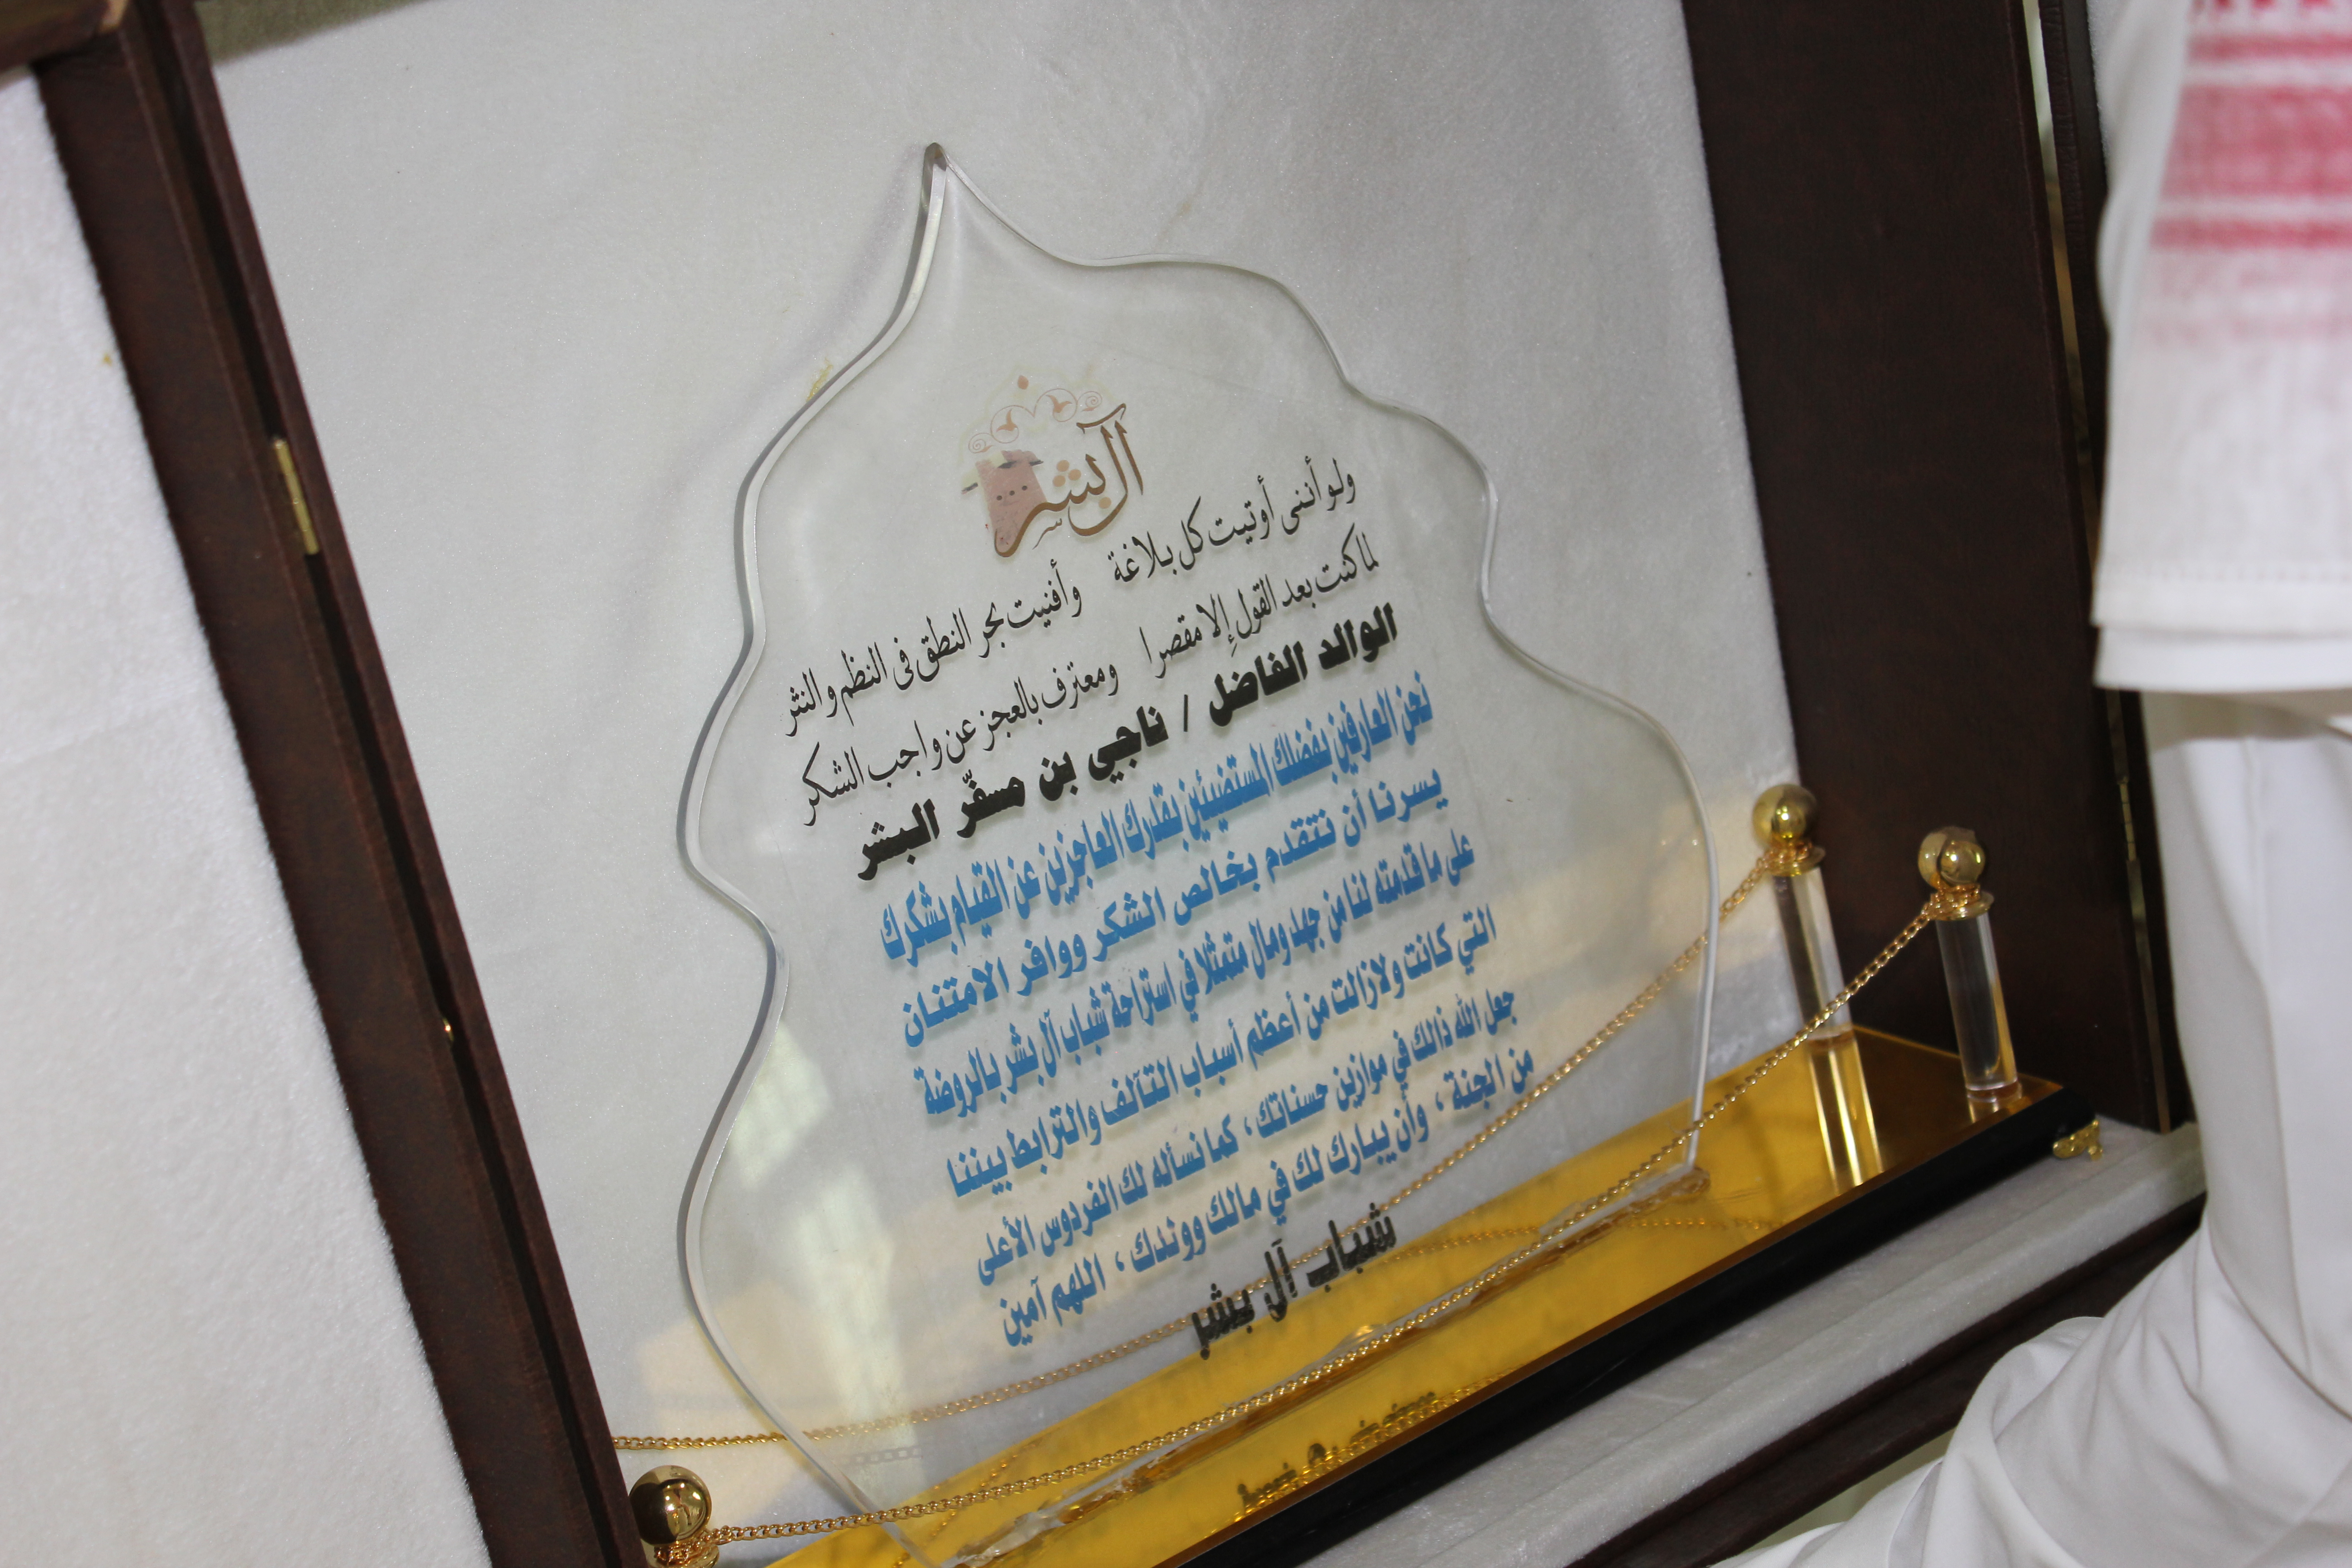 آل بشر
ولو أنني أوتيت كل بلاغة وأفنيت بحر النطق في النظم والنثر
لما كنت بعد القول إلا مقصرا ومعترف بالعجز عن واجب الشكر
الوالد الفاضل / ناجي بن مسفّر البشر
نحن العارفين بفضلك المستضيئين بقدرك العاجزين عن القيام بشكرك
يسرنا أن نتقدم بخالص الشكر ووافر الامتنان
على ما قدمته لنا من جهد ومال متمثلا في استراحة شباب آل بشر بالروضة
التي كانت ولازالت من أعظم أسباب التآلف والترابط بيننا
جعل الله ذالك في موازين حسناتك ، كما نسأله لك الفردوس الأعلى
من الجنة ، وأن يبارك لك في مالك وولدك ، اللهم آمين
شباب آل بشر